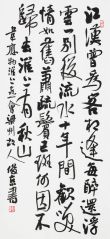 江漢曾為客相逢每醉還浮
雲一別後流水十年間歡笑
情如舊蕭疏鬢已斑何因不
歸去淮上有秋山
韋應物淮上喜會梁州故人